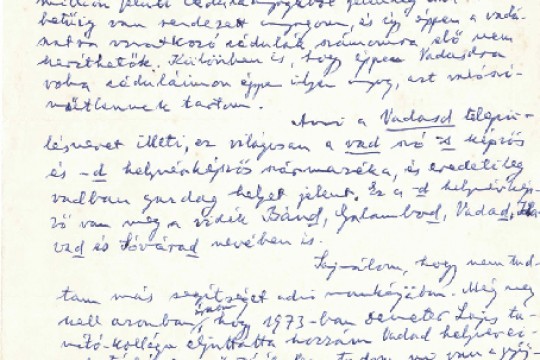 betűig van rendezett anyagom, és így éppen a vadá-
vonatkozó cédulák számomra elő nem
kerithetők. Különben is, hogy éppen Vadasdra
volna céduláimon éppen ilyen anyag, azt valószí-
nűtlennek tartom.
Ami a Vadasd telepü-
lésnevet illeti, ez világosan a vad szó -s képzős
és -d helynévképzős származéka, és eredetileg
vadban gazdag helyet jelent. Ez a -d helynévkép-
ző van meg a vidék Bánd, Galambod, Vadad, Ha-
vad és Sóvárad nevében is.
Sajnálom, hogy nem tud-
tam más segítséget adni munkájában. Még meg
kell azonban írnom, hogy 1973-ban Demeter Lajos ta-
nító-kolléga eljuttatta hozzám Vadad helynevei-